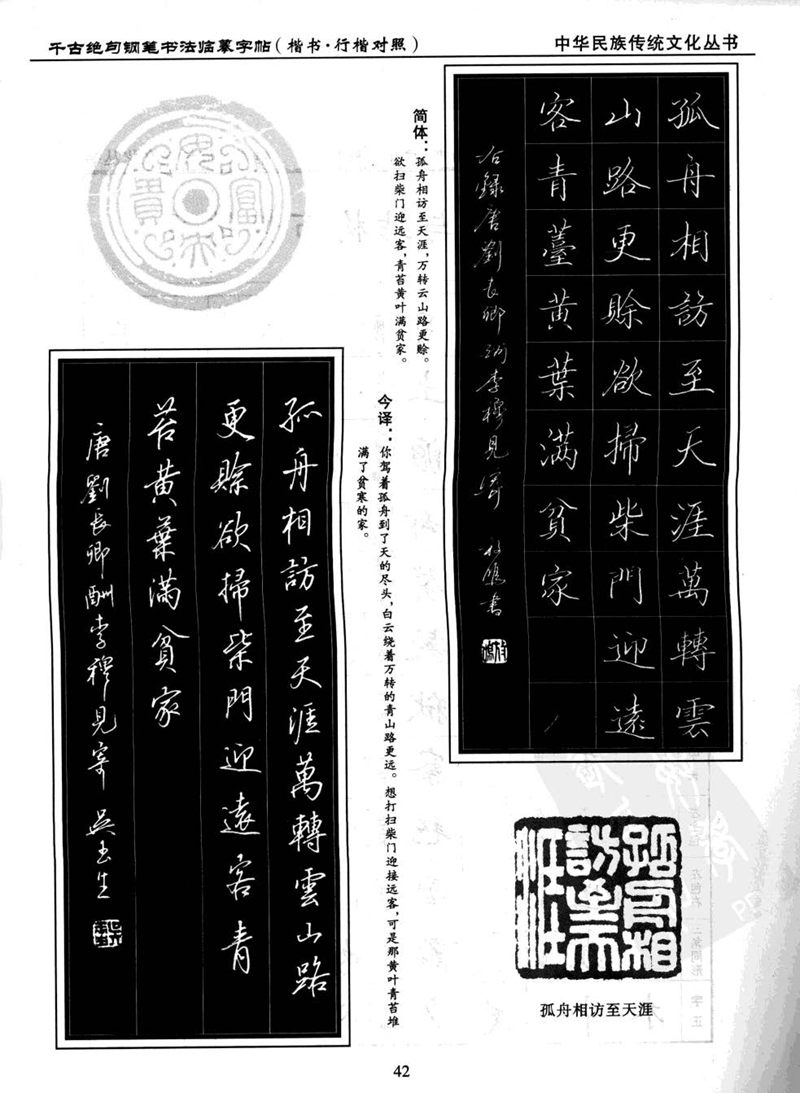 千古绝句钢笔书法临摹字帖（楷书·行楷对照）
中华民族传统文化丛书
孤舟相訪至天涯萬轉雲
山路更賒欲掃柴門迎遠
客青薹黃葉滿貧家
右錄唐劉長卿酬李穆見寄
简体：孤舟相访至天涯，万转云山路更赊。
欲扫柴门迎远客，青苔黄叶满贫家。
今译：你驾着孤舟到了天的尽头，白云绕着万转的青山路更远。想打扫柴门迎接远客，可是那黄叶青苔堆
满了贫寒的家。
孤舟相訪至天涯萬轉雲山路
更賒欲掃柴門迎遠客青
苔黃葉滿貧家
唐劉長卿酬李穆見寄 吳玉生
孤舟相
訪至天
涯
孤舟相访至天涯
42